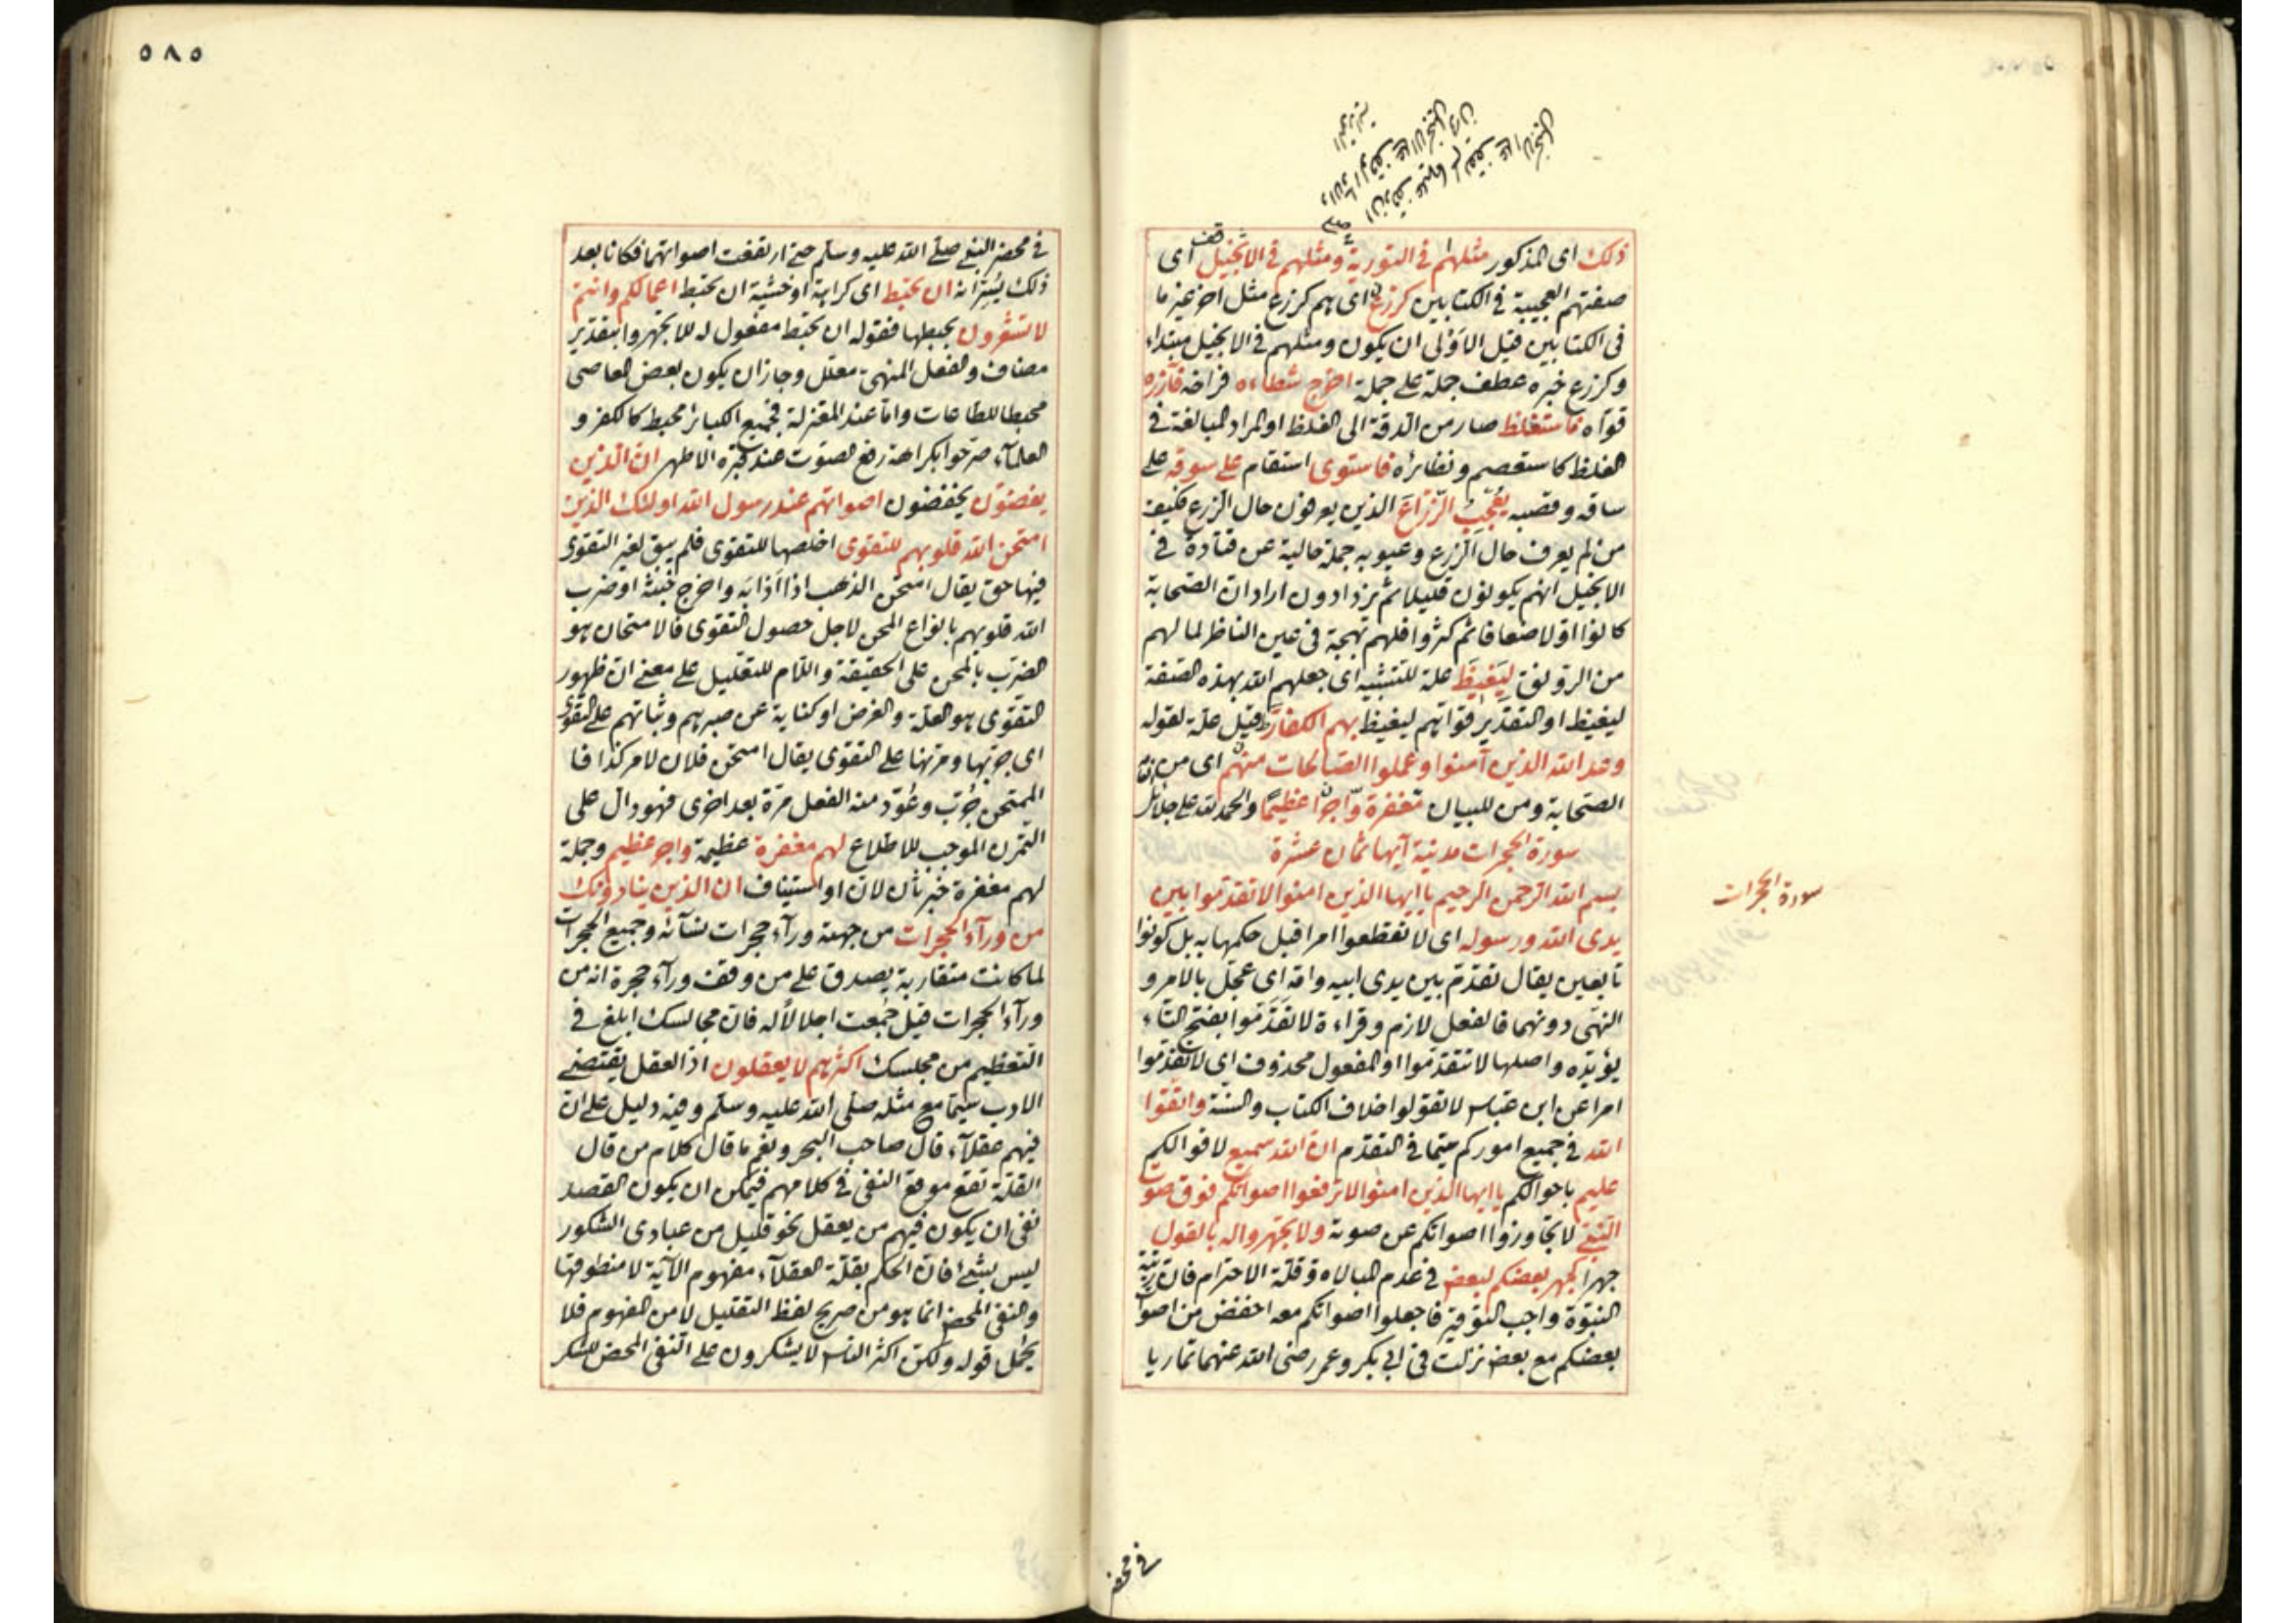 ذلك اى المذكور مثلهم فى التورية ومثلهم فى الانجيل اى
صفتهم العجيبة فى الكتابين كزرع اى هم كزرع مثل آخر غير ما
فى الكتابين قيل الاولى ان يكون ومثلهم فى الانجيل مبتداء
وكزرع خبره عطف جملة على جملة اخرج شطاءه فراخه فآزره
قواه فاستغلظ صار من الدقة الى الغلظ او المراد المبالغة فى
الغلظ كاستعصم ونظائره فاستوى استقام على سوقه على
ساقه وقصبه يعجب الزراع الذين يعرفون حال الزرع فكيف
من لم يعرف حال الزرع وعيوبه جملة حالية عن قتادة فى
الانجيل انهم يكونون قليلا ثم يزدادون اراد ان الصحابة
كانوا اولا ضعافا ثم كثروا فلهم بهجة فى عين الناظر لما لهم
من الرونق ليغيظ علة للتشبيه اى جعلهم الله بهذه الصفة
ليغيظ او التقدير قواهم ليغيظ بهم الكفار وقيل علة لقوله
وعد الله الذين آمنوا وعملوا الصالحات منهم اى من
الصحابة ومن للبيان مغفرة واجرا عظيما والحمد لله على
سورة الحجرات مدنية آيها ثمان عشرة
سورة الحجرات
بسم الله الرحمن الرحيم يا ايها الذين امنوا لا تقدموا بين
يدى الله ورسوله اى لا تقطعوا امرا قبل حكمهما به بل كونوا
تابعين يقال تقدم بين يدى ابيه وامه اى عجل بالامر و
النهى دونهما فالفعل لازم وقراءة لا تقدموا بفتح التاء
يؤيده واصلها لا تتقدموا او المفعول محذوف اى لا تقدموا
امرا عن ابن عباس لا تقولوا خلاف الكتاب والسنة واتقوا
الله فى جميع اموركم سيما فى التقدم ان الله سميع لاقوالكم
عليم باحوالكم يا ايها الذين امنوا لا ترفعوا اصواتكم فوق صوت
النبى لا تجاوزوا اصواتكم عن صوته ولا تجهروا له بالقول
جهرا كجهر بعضكم لبعض فى عدم المبالاة وقلة الاحترام فان رتبة
النبوة واجب التوقير فاجعلوا اصواتكم معه اخفض من اصوات
بعضكم مع بعض نزلت فى ابى بكر وعمر رضى الله عنهما تماريا
فى محضر
٥٨٥
فى محضر النبى صلى الله عليه وسلم حتى ارتفعت اصواتهما فكانا بعد
ذلك يسرانه ان تحبط اى كراهة او خشية ان تحبط اعمالكم وانتم
لا تشعرون بحبطها فقوله ان تحبط مفعول له للا تجهروا بتقدير
مضاف والفعل المنهى معلل وجاز ان يكون بعض المعاصى
محبطا للطاعات واما عند المعتزلة فجميع الكبائر محبط كالكفر و
العلماء صرحوا بكراهة رفع الصوت عند قبره الاطهر ان الذين
يغضون يخفضون اصواتهم عند رسول الله اولئك الذين
امتحن الله قلوبهم للتقوى اخلصها للتقوى فلم يبق لغير التقوى
فيها حق يقال امتحن الذهب اذا اذابه واخرج خبثه او ضرب
الله قلوبهم بانواع المحن لاجل حصول التقوى فالامتحان هو
الضرب بالمحن على الحقيقة واللام للتعليل على معنى ان ظهور
التقوى هو العلة والغرض او كناية عن صبرهم وثباتهم على التقوى
اى جربها ومرنها على التقوى يقال امتحن فلان لامر كذا فا
الممتحن جرب وعود منه الفعل مرة بعد اخرى فهو دال على
التمرن الموجب للاطلاع لهم مغفرة عظيمة واجر عظيم وجملة
لهم مغفرة خبر ثان لان او استيناف ان الذين ينادونك
من ورآء الحجرات من جهة ورآء حجرات نسائه وجميع الحجرات
لما كانت متقاربة يصدق على من وقف ورآء حجرة انه من
ورآء الحجرات قيل جمعت اجلالا له فان مجالسك ابلغ فى
التعظيم من مجلسك اكثرهم لا يعقلون اذ العقل يقتضى
الادب سيما مع مثله صلى الله عليه وسلم وفيه دليل على ان
فيهم عقلاء قال صاحب البحر ونعم ما قال كلام من قال
القلة تقع موقع النفى فى كلامهم فيمكن ان يكون القصد
نفى ان يكون فيهم من يعقل نحو قليل من عبادى الشكور
ليس بشئ فان الحكم بقلة العقلاء مفهوم الآية لا منطوقها
والنفى المحض انما هو من صريح لفظ التقليل لا من المفهوم فلا
يحمل قوله ولكن اكثر الناس لا يشكرون على النفى المحض للشكر